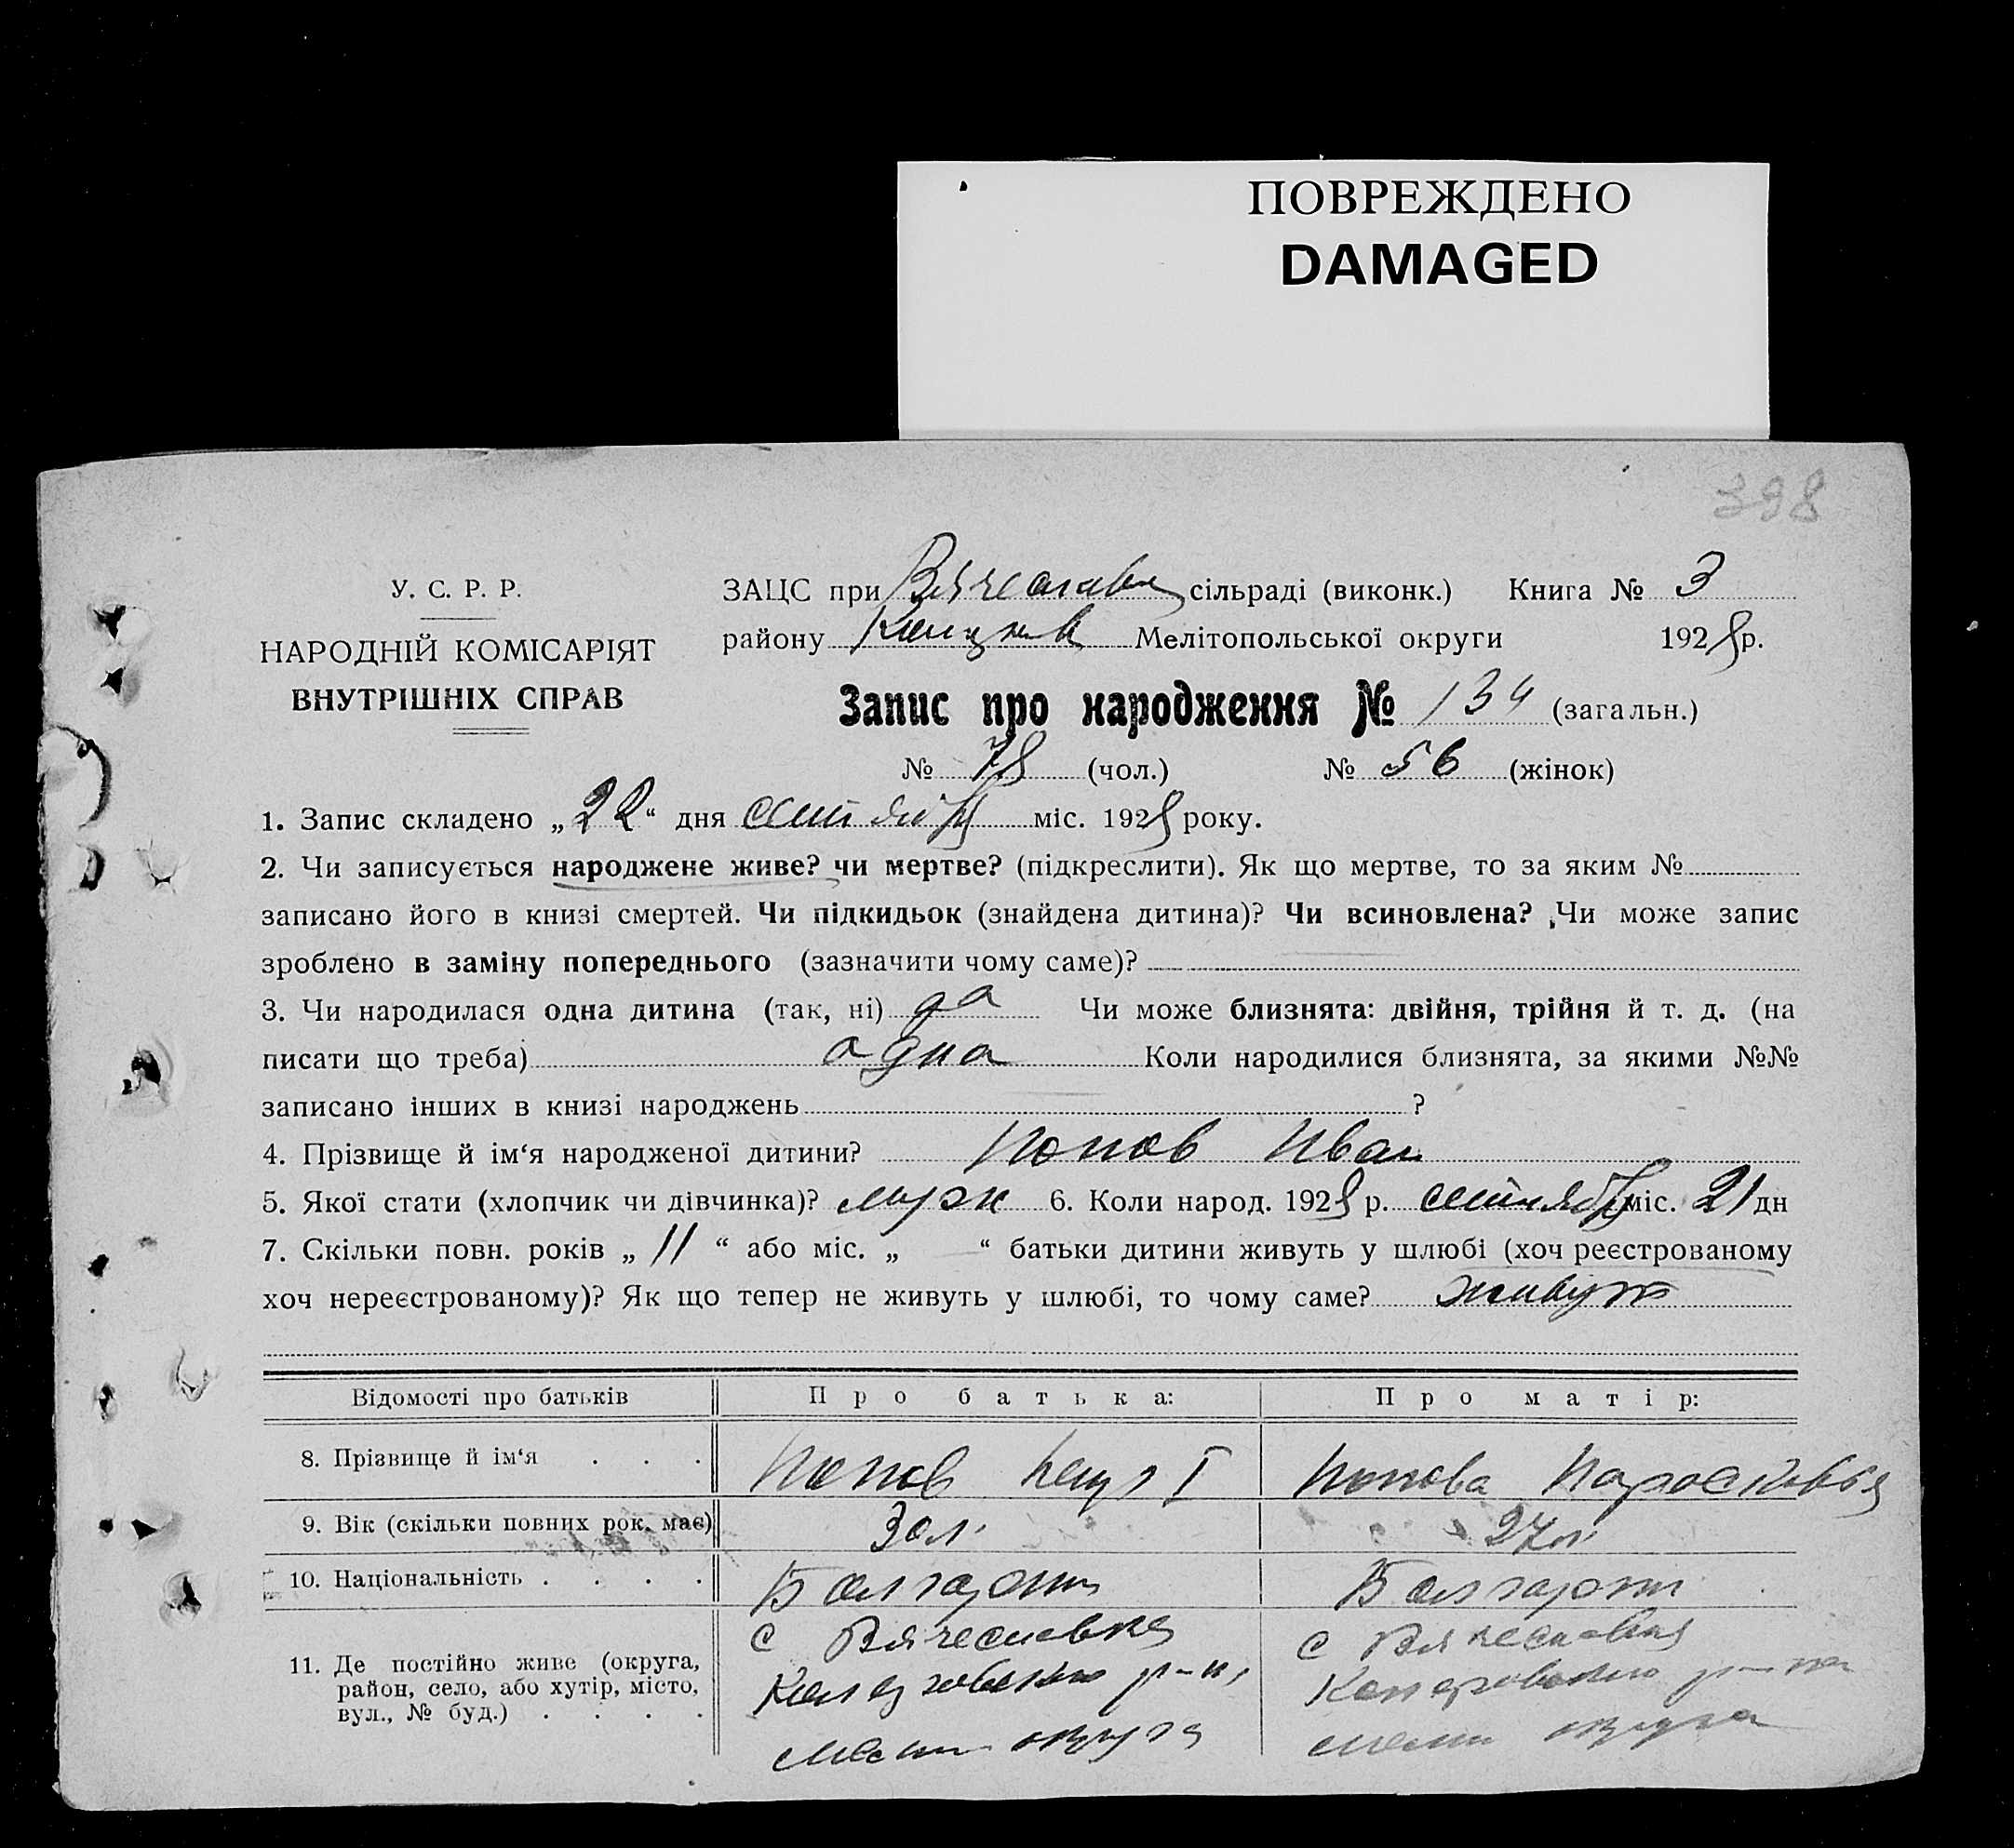 ПОВРЕЖДЕНО
DAMAGED
398
У. С. Р. Р.
НАРОДНІЙ КОМІСАРІЯТ
ВНУТРІШНІХ СПРАВ
ЗАЦС при сільраді (виконк.) Книга № 3
району Мелітопольської округи 1928 р.
Запис про народження № 134 (загальн.)
№ 78 (чол.) № 56 (жінок)
1. Запис складено „22“ дня сентября міс. 1928 року.
2. Чи записується народжене живе? чи мертве? (підкреслити). Як що мертве, то за яким №
записано його в книзі смертей. Чи підкидьок (знайдена дитина)? Чи всиновлена? Чи може запис
зроблено в заміну попереднього (зазначити чому саме)?
3. Чи народилася одна дитина (так, ні) да Чи може близнята: двійня, трійня й т. д. (на
писати що треба) адна Коли народилися близнята, за якими №№
записано інших в книзі народжень ?
4. Прізвище й ім‘я народженої дитини? Попов Иван
5. Якої стати (хлопчик чи дівчинка)? мужск 6. Коли народ. 1928 р. сентября міс. 21 дн
7. Скільки повн. років „ 11 “ або міс. „ “ батьки дитини живуть у шлюбі (хоч реєстрованому
хоч нереєстрованому)? Як що тепер не живуть у шлюбі, то чому саме? живут
Відомості про батьків Про батька: Про матір:
8. Прізвище й ім‘я . . . Попов Попова Парасковья
9. Вік (скільки повних рок. має) 30 л. 27 л.
10. Національність . . . . Болгарин Болгарин
11. Де постійно живе (округа, с Вячеславка с Вячеславка
район, село, або хутір, місто, р-на р-на
вул., № буд.) . . . . округа округа